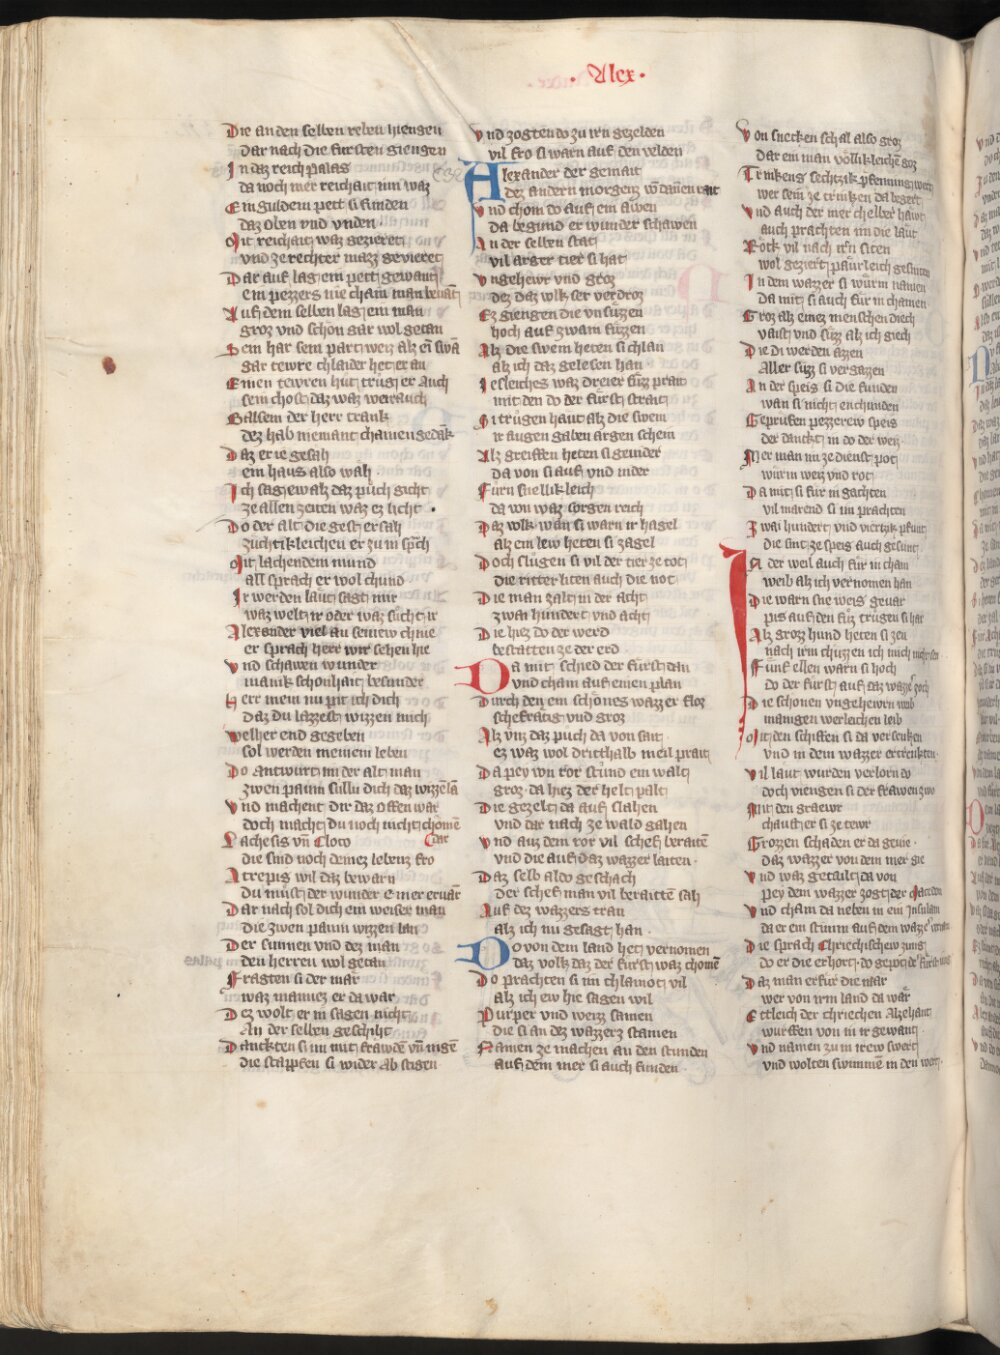 Alex
Die an den selben reben hiengen
Dar nach die fursten giengen
In daz reich palas
da noch mer reichait inn waz
Ein guldein pett si funden
daz oben vnd vnden
Mit reichait waz gezieret
vnd ze rechter mazz gevieret
Dar auf lag ein pett gewant
ein pezzers nie cham man benant
Auf dem selben lag ein man
groz vnd schon gar wol getan
Sein har sein part weiz alz ein swan
gar tewre chlaider het er an
Einen tewren hut trug er auch
sein chost daz waz weirauch
Balsem der herr trank
dez hab niemant chainen gedank
Daz er ie gesah
ein haus also wah
Ich sag ew alz daz puch gicht
ze allen zeiten waz ez licht
Do der alt die gest ersah
zuchtikleichen er zu in sprach
Mit lachendem mund
all sprach er wol chund
Ir werden laut sagt mir
waz welt ir oder waz sucht ir
Alexander viel an seinew chnie
er sprach herr wir sehen hie
Vnd schawen wunder
manik schonhait besunder
Herr mein nu pit ich dich
daz du lazzest wizzen mich
Welher end gegeben
sol werden meinem leben
Do antwurt im der alt man
zwen paum sullu dich daz wizzen lan
Vnd machent dir daz offenwar
doch macht du noch nicht chomen
dar
Lachesis vnd Cloto
die sind noch deinez lebenz fro
Atropis wil daz bewarn
Du must der wunder e mer ervarn
Dar nach sol dich ein weiser man
die zwen paum wizzen lan
Der sunnen vnd dez man
den herren wol getan
Fragten si der mar
waz mannez er da war
Dez wolt er in sagen nicht
An der selben geschiht
Danckten si im mit frawden vnd nigen
die stapffen si wider ab stigen
Vnd zogten do zu irn gezelden
vil fro si warn auf den velden
Alexander der gemait
dez andern morgenz von dannen rait
Vnd chom do auf ein awen
da begund er wunder schawen
An der selben stat
vil arger tier si hat
Vngehewr vnd groz
dez daz volk ser verdroz
Ez giengen die vnsuzzen
hoch auf zwain fuzzen
Alz die swein heten si chlan
alz ich daz gelesen han
Iesleiches waz dreier fuz prait
mit den do der furst strait
Si trugen haut alz die swein
ir augen gaben argen schein
Alz greiffen heten si geuider
da von si auf vnd nider
Furn snellikleich
da von waz sorgen reich
Daz volk wan si warn ir hagel
alz ein lew heten si zagel
Doch slugen si vil der tier ze tot
die ritter liten auch die not
Die man zalt in der acht
zwai hundert vnd acht
Die hiez do der werd
bestatten ze der erd
Da mit schied der furst dan
vnd cham auf einen plan
Durch den ein schones wazzer floz
schefraich vnd groz
Alz vnz daz puch da von sait
ez waz wol dritthalb meil prait
Da pey von ror stund ein walt
groz da hiez der helt palt
Die gezelt da auf slahen
vnd dar nach ze wald gahen
Vnd auz dem ror vil schef beraiten
vnd die auf daz wazzer laiten
Daz selb aldo geschach
Der schef man vil beraitte sah
Auf dez wazzers tran
alz ich nu gesagt han
Do von dem land het vernomen
daz volk daz der furst waz chomen
Do prachten si im chlainot vil
alz ich ew hie sagen wil
Purper vnd weizz samen
die si an dez wazzerz stamen
Namen ze machen an den stunden
auf dem mer si auch funden
Von snecken schal also groz
Dar ein man vollikleichen goz
Trinkens sechtzik pfenning wert
wer sein ze trinken da begert
Vnd auch der mer chelber haut
auch prachten im die laut
Rock vil nach irn siten
wol geziert paurleich gesniten
In dem wazzer si wurm namen
Da mit si auch fur in chamen
Groz alz einez menschen diech
vaist vnd suz alz ich giech
Die di werden azzen
Aller suzz si vergazzen
An der speis si die funden
wan si nicht enchunden
Gepruffen pezzerew speis
der danckt in do der weis
Mer man im ze dienst pot
wurm weiz vnd rot
Da mit si fur in gachten
vil marend si im prachten
Zwai hundert vnd viertzik pfunt
die sint ze speis auch gesunt
In der weil auch fur in cham
weib alz ich vernomen han
Die warn sne weis gevar
pis auf den fuz trugen si har
Alz groz hund heten si zen
nach irm chuzzen ich mich
Funf ellen warn si hoch
do der furst auf daz wazzer zoch
Die schonen vngehewrn weib
manigen werleichen leib
Mit den schiffen si da versenken
vnd in dem wazzer ertrenkten
Vil laut wurden verlorn do
doch viengen si der frawen zwo
Mit den
chaust er si ze tewr
Grozzen schaden er da genie
daz wazzer von dem mer gie
Vnd waz getailt da von
pey dem wazzer zogt der
Vnd cham da neben in ein Insulam
da er ein stimm auf dem wazzer vernam
Die sprach Chriechischew zung
do er die erhort do gepot der furst iung
Daz man erfur die mar
wer von irm land da war
Ettleich der chriechen alzehant
wurffen von in ir gewant
Vnd namen zu in irew swert
vnd wolten swimmen in den wert